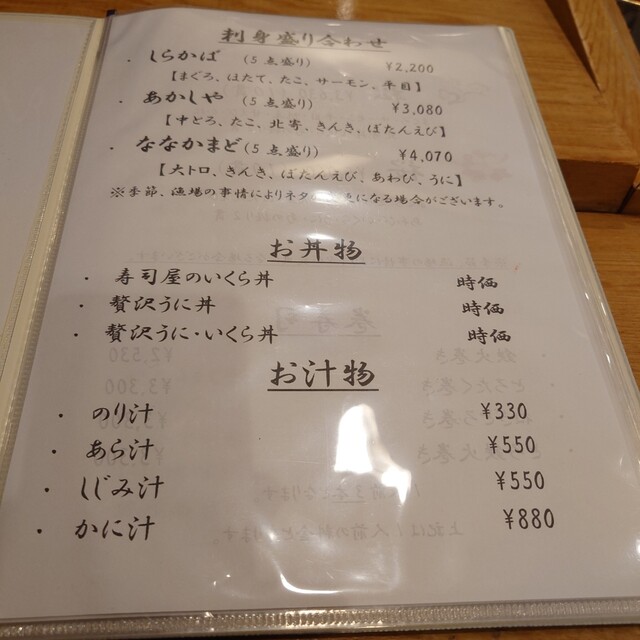 刺身盛り合わせ
・しらかば (5点盛り) ¥2,200
【まぐろ、ほたて、たこ、サーモン、平目】
・あかしや (5点盛り) ¥3,080
【中とろ、たこ、北寄、きんき、ぼたんえび】
・ななかまど(5点盛り) ¥4,070
【大トロ、きんき、ぼたんえび、あわび、うに】
※季節、漁場の事情によりネタ になる場合がございます。
お丼物
・寿司屋のいくら丼 時価
・贅沢うに丼 時価
・贅沢うに・いくら丼 時価
お汁物
・のり汁 ¥330
・あら汁 ¥550
・しじみ汁 ¥550
・かに汁 ¥880